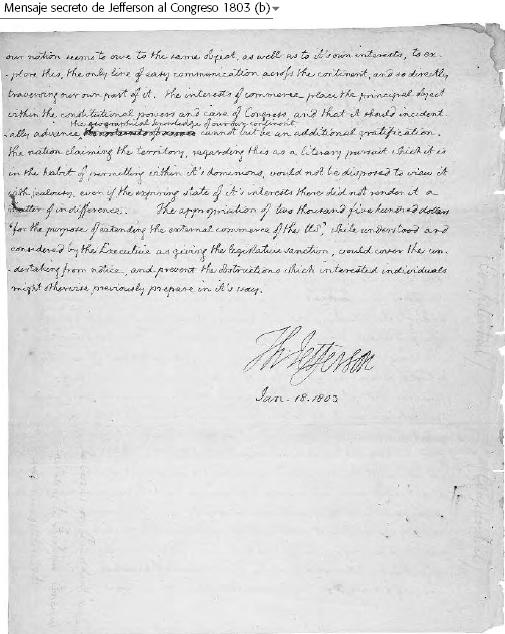 Mensaje secreto de Jefferson al Congreso 1803 (b)
our nation seems to owe to the same object, as well as to it's own interests, to ex-
-plore this, the only line of easy communication across the continent, and so directly
traversing our own part of it. the interests of commerce place the principal object
within the constitutional powers and care of Congress, and that it should incident-
the geographical knowledge of our own continent
-ally advance cannot but be an additional gratification.
the nation claiming the territory, regarding this as a literary pursuit which it is
in the habit of permitting within it's dominions, would not be disposed to view it
with jealousy, even if the expiring state of it's interests there did not render it a
matter of indifference. The appropriation of two thousand five hundred dollars
'for the purpose of extending the external commerce of the US,' while understood and
considered by the Executive as giving the legislative sanction, would cover the un-
-dertaking from notice, and prevent the obstructions which interested individuals
might otherwise previously prepare in it's way.
Th: Jefferson
Jan. 18. 1803